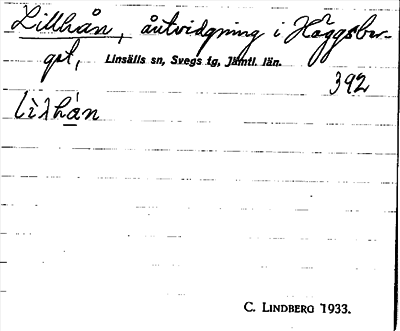 Lillhån, åutvidgning i Häggsber-
get, Linsälls sn, Svegs tg, Jämtl. län.
392
lìlhán
C. LINDBERG 1933.